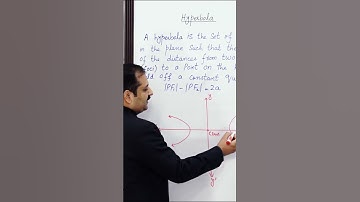 Hyperbola
A Hyperbola is the Set of
in the plane Such that the
of the distances from two
(foci) to a Point on the
off a constant
|PF₁| - |PF₂| = 2a